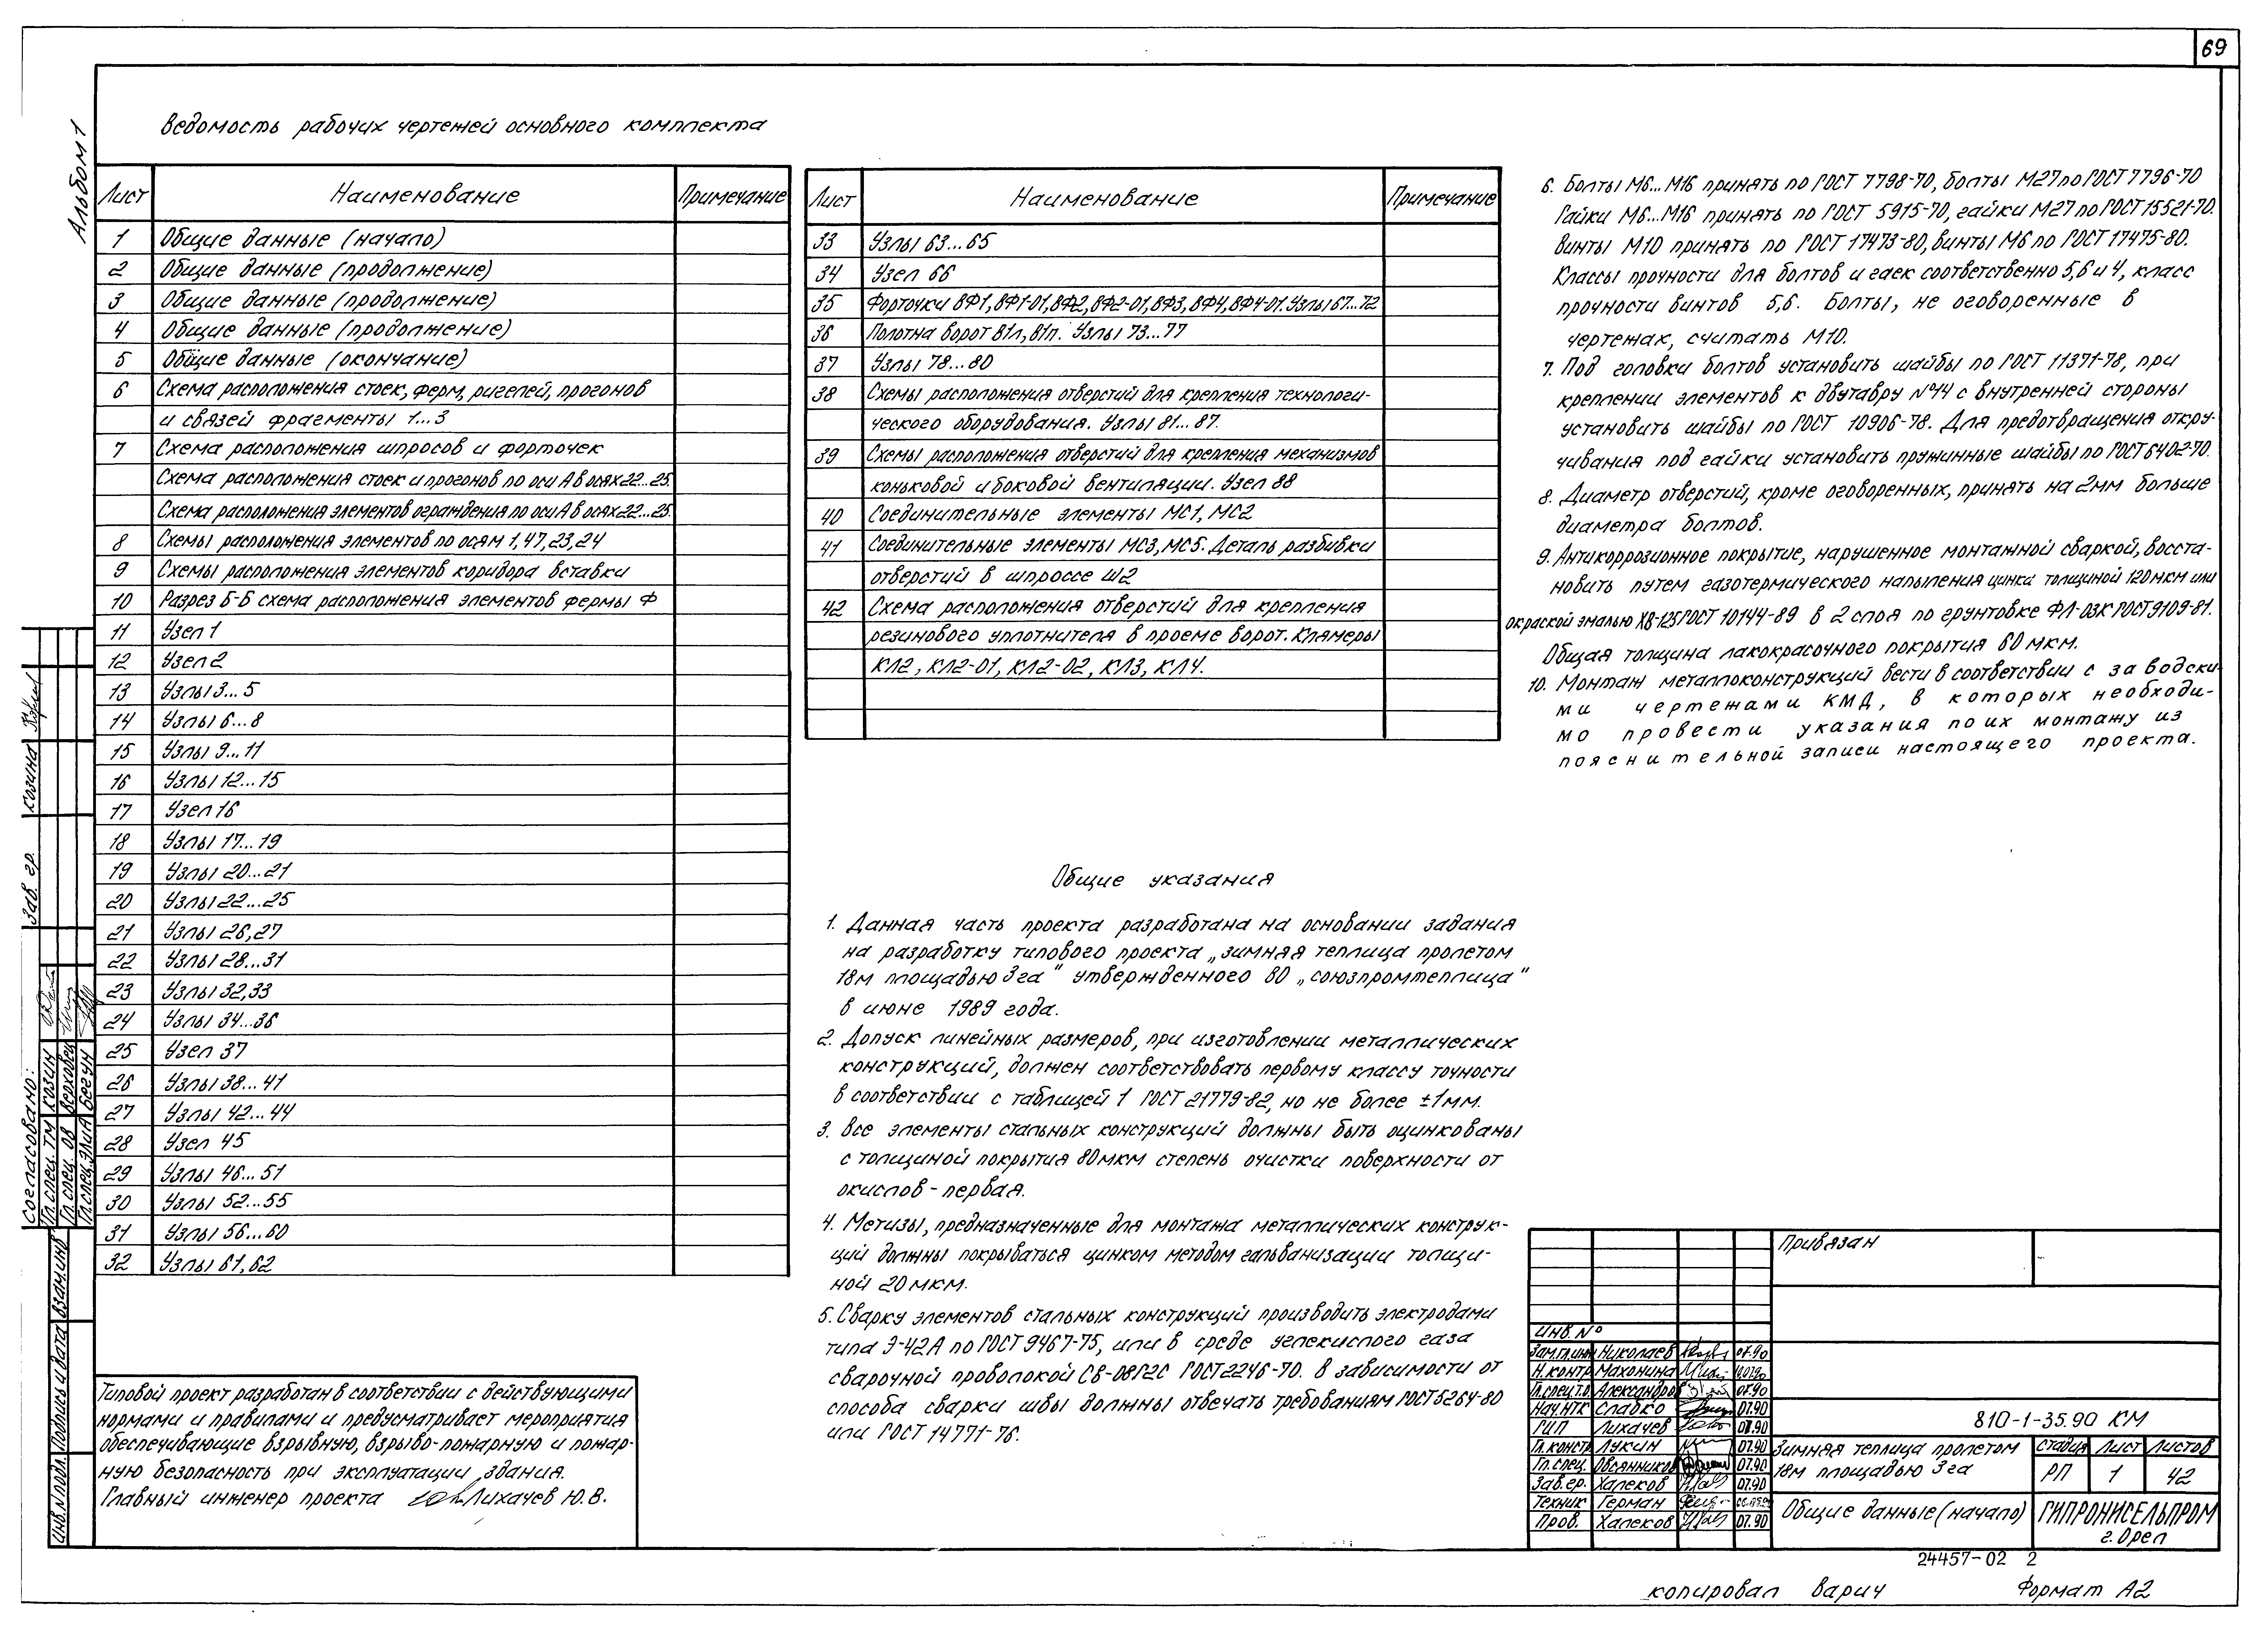 69
Альбом 1
Ведомость рабочих чертежей основного комплекта
Лист Наименование Примечание
1 Общие данные (начало)
2 Общие данные (продолжение)
3 Общие данные (продолжение)
4 Общие данные (продолжение)
5 Общие данные (окончание)
6 Схема расположения стоек, ферм, ригелей, прогонов
и связей фрагменты 1...3
7 Схема расположения шпросов и форточек
Схема расположения стоек и прогонов по оси А в осях 22...25.
Схема расположения элементов ограждения по оси А в осях 22...25.
8 Схемы расположения элементов по осям 1,47,23,24
9 Схемы расположения элементов коридора вставки
10 Разрез Б-Б схема расположения элементов фермы Ф
11 Узел 1
12 Узел 2
13 Узлы 3...5
14 Узлы 6...8
15 Узлы 9...11
16 Узлы 12...15
17 Узел 16
18 Узлы 17...19
19 Узлы 20...21
20 Узлы 22...25
21 Узлы 26,27
22 Узлы 28...31
23 Узлы 32,33
24 Узлы 34...36
25 Узел 37
26 Узлы 38...41
27 Узлы 42...44
28 Узел 45
29 Узлы 46...51
30 Узлы 52...55
31 Узлы 56...60
32 Узлы 61,62
Лист Наименование Примечание
33 Узлы 63...65
34 Узел 66
35 Форточки ВФ1, ВФ1-01, ВФ2, ВФ2-01, ВФ3, ВФ4, ВФ4-01. Узлы 67...72
36 Полотна ворот В1л, В1п. Узлы 73...77
37 Узлы 78...80
38 Схемы расположения отверстий для крепления технологи-
ческого оборудования. Узлы 81...87.
39 Схемы расположения отверстий для крепления механизмов
коньковой и боковой вентиляции. Узел 88
40 Соединительные элементы МС1, МС2
41 Соединительные элементы МС3, МС5. Деталь разбивки
отверстий в шпроссе Ш2
42 Схема расположения отверстий для крепления
резинового уплотнителя в проеме ворот. Клямеры
КЛ2, КЛ2-01, КЛ2-02, КЛ3, КЛ4.
Общие указания
1. Данная часть проекта разработана на основании задания
на разработку типового проекта „Зимняя теплица пролетом
18м площадью 3га“ утвержденного ВО „Союзпромтеплица“
в июне 1989 года.
2. Допуск линейных размеров, при изготовлении металлических
конструкций, должен соответствовать первому классу точности
в соответствии с таблицей 1 ГОСТ 21779-82, но не более ±1мм.
3. Все элементы стальных конструкций должны быть оцинкованы
с толщиной покрытия 80мкм степень очистки поверхности от
окислов - первая.
4. Метизы, предназначенные для монтажа металлических конструк-
ций должны покрываться цинком методом гальванизации толщи-
ной 20 мкм.
5. Сварку элементов стальных конструкций производить электродами
типа Э-42А по ГОСТ 9467-75, или в среде углекислого газа
сварочной проволокой СВ-08Г2С ГОСТ 2246-70. В зависимости от
способа сварки швы должны отвечать требованиям ГОСТ 5264-80
или ГОСТ 14771-76.
6. Болты М6...М16 принять по ГОСТ 7798-70, болты М27 по ГОСТ 7796-70
Гайки М6...М16 принять по ГОСТ 5915-70, гайки М27 по ГОСТ 15521-70.
Винты М10 принять по ГОСТ 17473-80, винты М6 по ГОСТ 17475-80.
Классы прочности для болтов и гаек соответственно 5,6 и 4, класс
прочности винтов 5,6. Болты, не оговоренные в
чертежах, считать М10.
7. Под головки болтов установить шайбы по ГОСТ 11371-78, при
креплении элементов к двутавру №14 с внутренней стороны
установить шайбы по ГОСТ 10906-78. Для предотвращения откру-
чивания под гайки установить пружинные шайбы по ГОСТ 6402-70.
8. Диаметр отверстий, кроме оговоренных, принять на 2мм больше
диаметра болтов.
9. Антикоррозионное покрытие, нарушенное монтажной сваркой, восста-
новить путем газотермического напыления цинка толщиной 120 мкм или
окраской эмалью ХВ-125 ГОСТ 10144-89 в 2 слоя по грунтовке ФЛ-03К ГОСТ 9109-81.
Общая толщина лакокрасочного покрытия 60 мкм.
10. Монтаж металлоконструкций вести в соответствии с заводски-
ми чертежами КМД, в которых необходи-
мо провести указания по их монтажу из
пояснительной записи настоящего проекта.
Типовой проект разработан в соответствии с действующими
нормами и правилами и предусматривает мероприятия
обеспечивающие взрывную, взрыво-пожарную и пожар-
ную безопасность при эксплуатации здания.
Главный инженер проекта Лихачев Ю.В.
Зав. гр. Козина
Согласовано:
Гл. спец. ТМ Козин
Гл. спец. ОВ Верховец
Гл. спец. ЭЛиА Бегун
Инв.N подл. Подпись и дата Взам.инв
Привязан
Инв. №
Зам.гл.инж Николаев 07.90
Н.контр Махонина
Гл.спец.т.о. Александров 07.90
Нач.НТК Слабко 07.90
ГИП Лихачев 07.90
Гл.констр Лукин 07.90
Гл.спец. Овсянников 07.90
Зав.гр. Халеков 07.90
Техник Герман
Пров. Халеков 07.90
810-1-35.90 КМ
Зимняя теплица пролетом
18м площадью 3га
Стадия Лист Листов
РП 1 42
Общие данные (начало)
ГИПРОНИСЕЛЬПРОМ
г. Орел
24457-02 2
Копировал Варич Формат А2